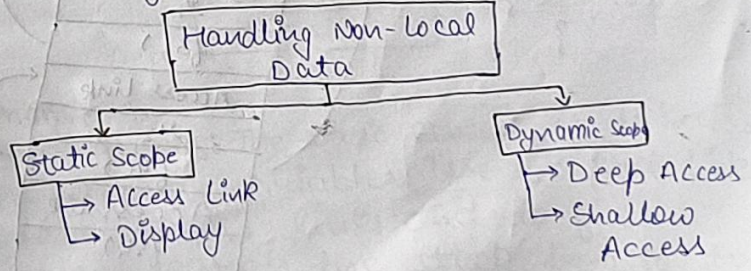 Handling Non-Local
Data
Static Scope
Access Link
Display
Dynamic Scope
Deep Access
Shallow
Access